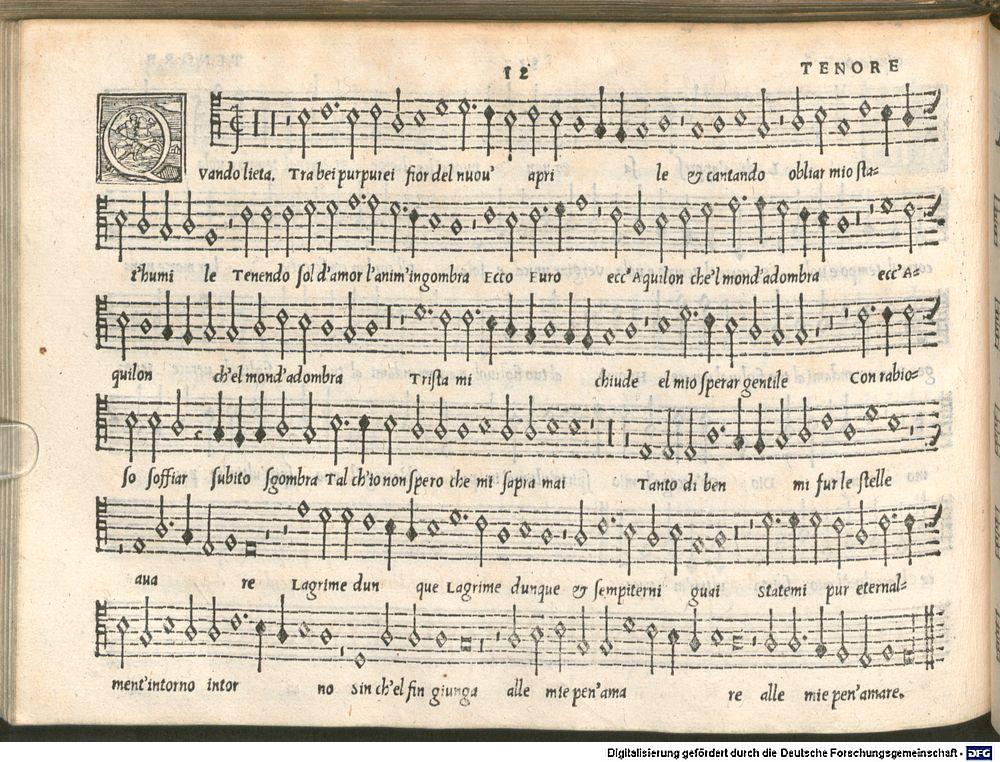 12
TENORE
Q
vando lieta. Tra bei purpurei fior del nuou' apri le & cantando obliar mio sta-
t'humi le Tenendo sol d'amor l'anim'ingombra Ecco Euro ecc'Aquilon che'l mond'adombra ecc'A-
quilon ch'el mond'adombra Trista mi chiude el mio sperar gentile Con rabio-
so soffiar subito sgombra Tal ch'io non spero che mi sapra mai Tanto di ben mi fur le stelle
aua re Lagrime dun que Lagrime dunque & sempiterni guai statemi pur eternal-
ment'intorno intor no sin ch'el fin giunga alle mie pen'ama re alle mie pen'amare.
Digitalisierung gefördert durch die Deutsche Forschungsgemeinschaft - DFG